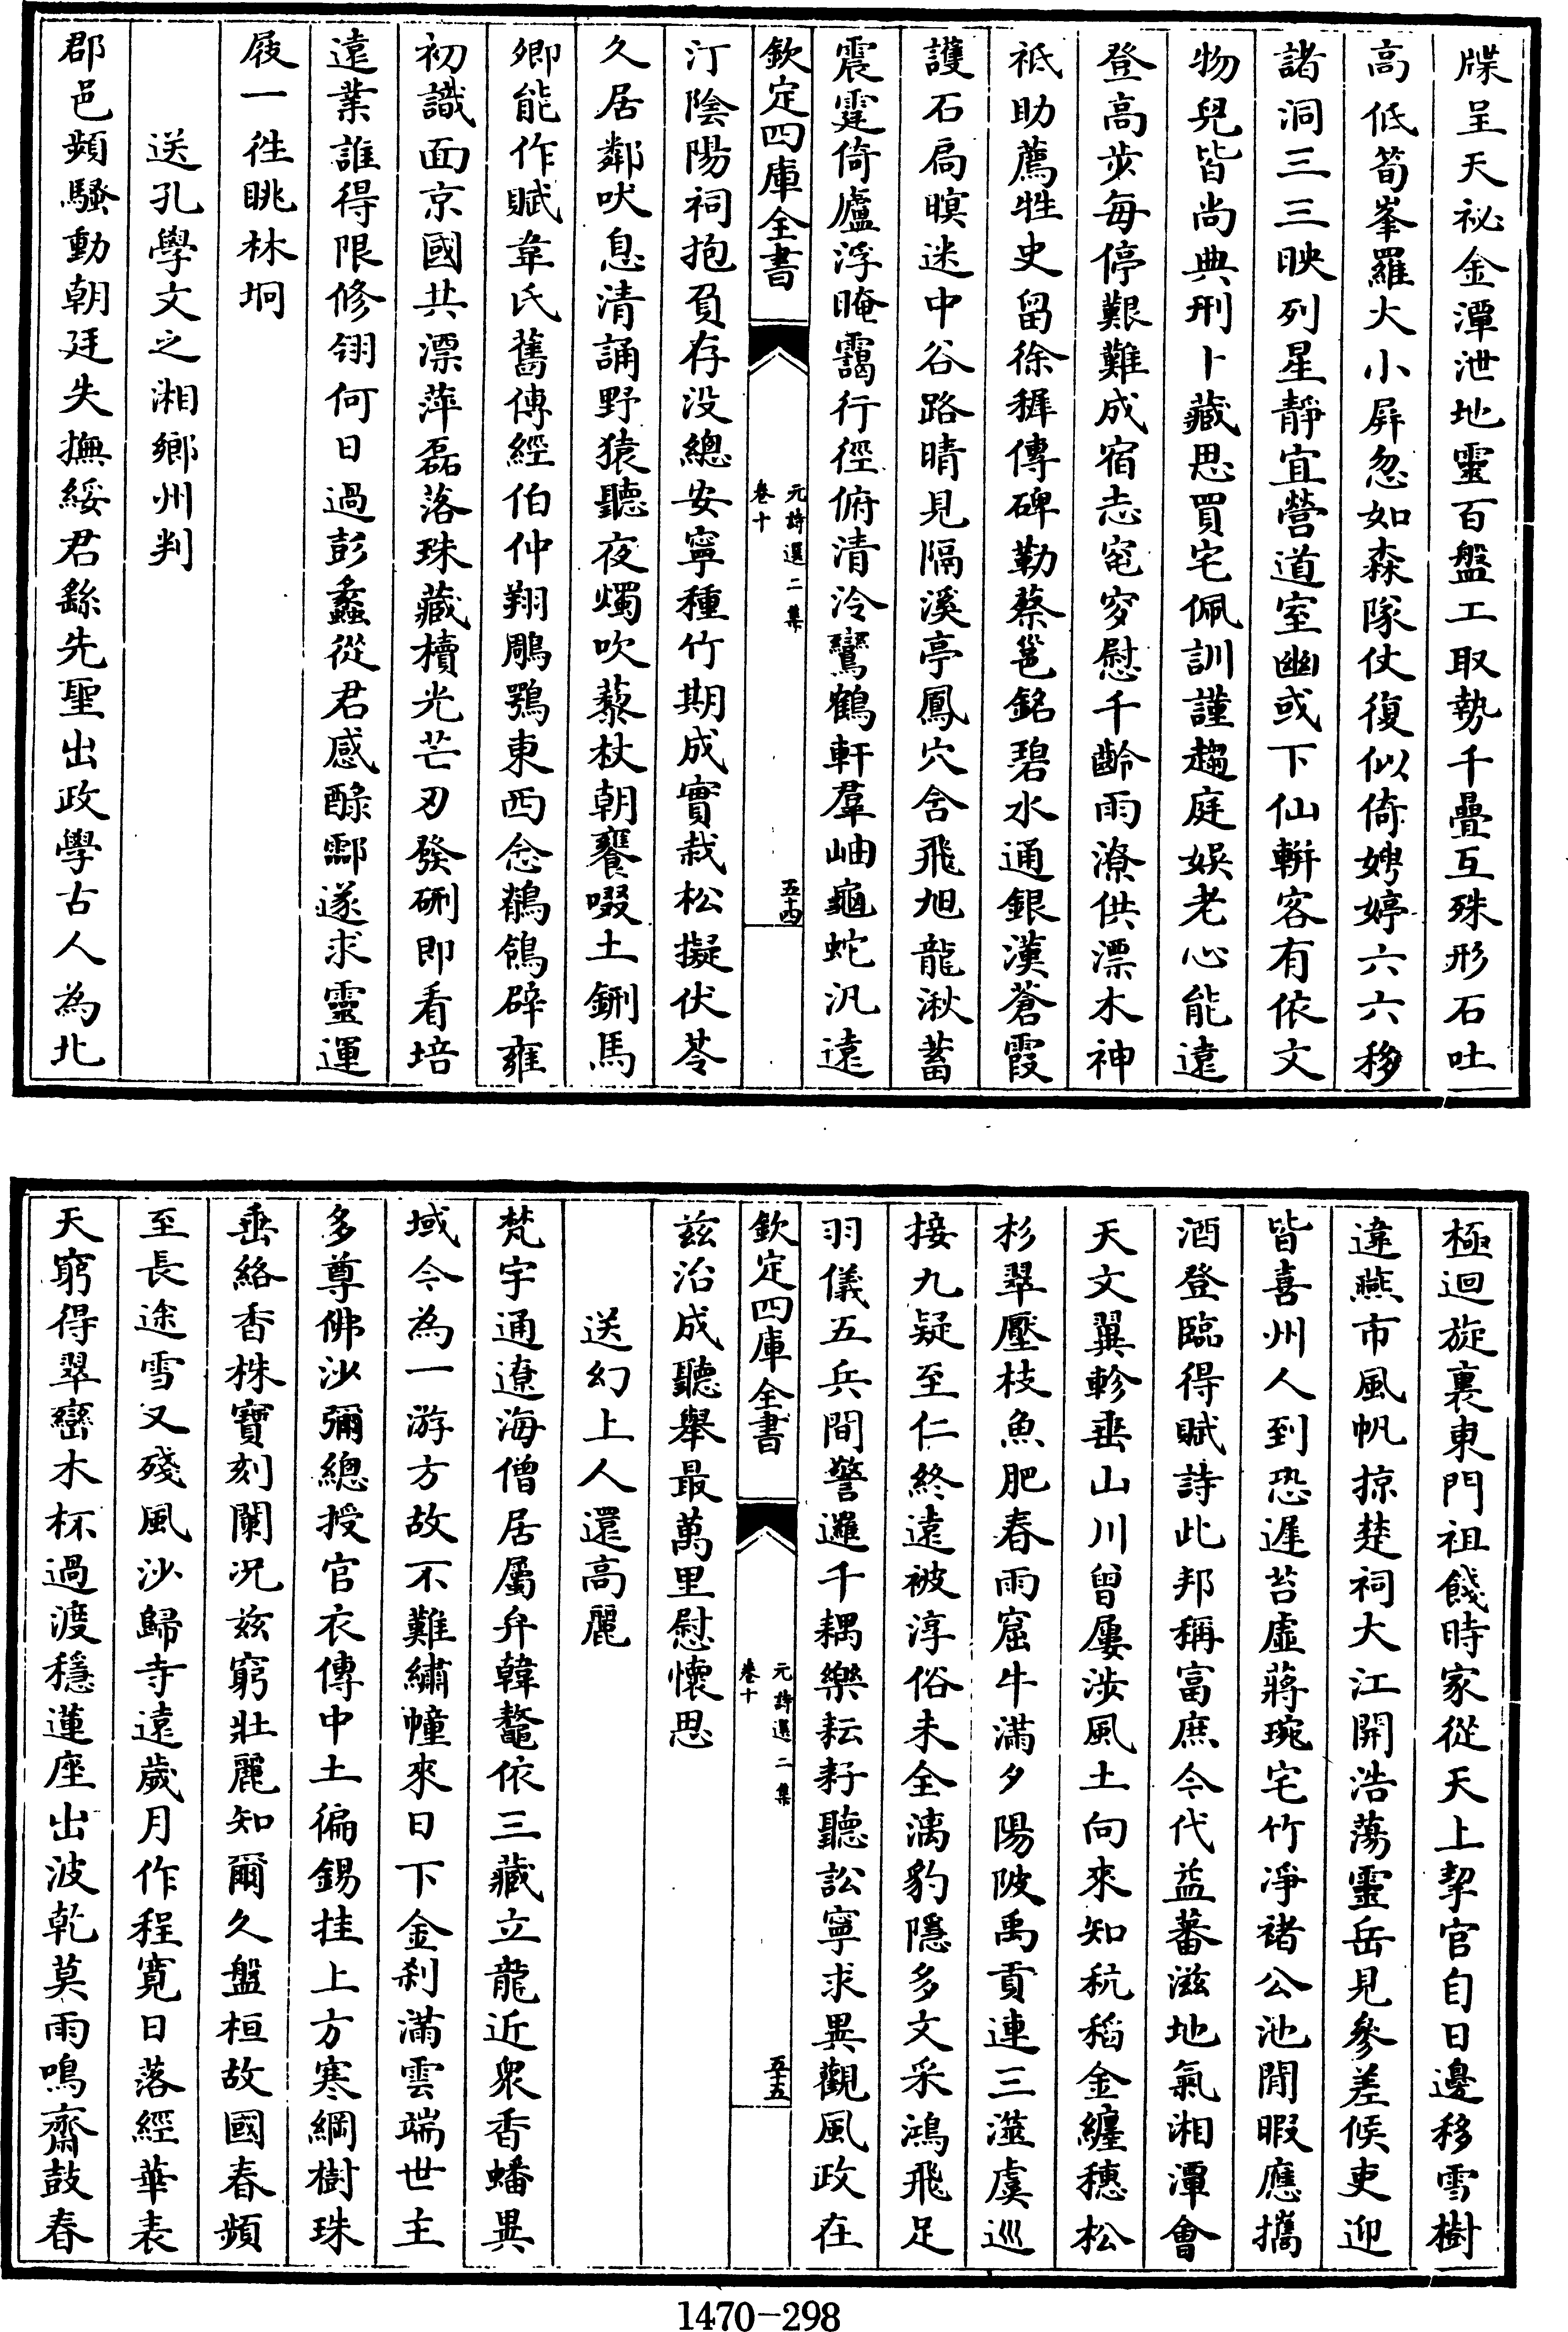 牒呈天祕金潭泄地靈百盤工取勢千疊互殊形石吐
高低筍峯羅大小屏忽如森隊仗復似倚娉婷六六移
諸洞三三映列星靜宜營道室幽或下仙輧客有依文
物兒皆尚典刑卜藏思買宅佩訓謹趨庭娱老心能遠
登高步每停艱難成宿志窀穸慰千齡雨潦供漂木神
祗助薦牲史留徐穉傳碑勒蔡邕銘碧水通銀漢蒼霞
護石扃暝迷中谷路晴見隔溪亭鳳穴含飛旭龍湫蓄
震霆倚廬浮晻靄行徑俯清泠鸞鶴軒羣岫龜蛇汎遠
欽定四庫全書
元詩選二集
卷十
五十四
汀陰陽祠抱負存没總安寧種竹期成實栽松擬伏苓
久居鄰吠息清誦野猿聽夜燭吹藜杖朝饔啜土鉶馬
卿能作賦韋氏舊傳經伯仲翔鵰鶚東西念鶺鴒辟雍
初識面京國共漂萍磊落珠藏櫝光芒刃發硎即看培
遠業誰得限修翎何日過彭蠡從君感醁酃遂求靈運
屐一徃眺林坰
送孔學文之湘鄉州判
郡邑頻騷動朝廷失撫綏君繇先聖出政學古人為北
極迴旋裏東門祖餞時家從天上挈官自日邊移雪樹
違燕市風帆掠楚祠大江開浩蕩靈岳見參差候吏迎
皆喜州人到恐遲苔虚蔣琬宅竹凈褚公池閒暇應攜
酒登臨得賦詩此邦稱富庶今代益蕃滋地氣湘潭會
天文翼軫垂山川曾屢涉風土向來知秔稻金纏穗松
杉翠壓枝魚肥春雨窟牛滿夕陽陂禹貢連三澨虞巡
接九疑至仁終遠被淳俗未全漓豹隱多文采鴻飛足
羽儀五兵間警邏千耦樂耘耔聽訟寧求異觀風政在
欽定四庫全書
元詩選二集
卷十
五十五
兹治成聽舉最萬里慰懷思
送幻上人還高麗
梵宇通遼海僧居屬弁韓鼇依三藏立龍近衆香蟠異
域今為一游方故不難繡幢來日下金刹滿雲端世主
多尊佛沙彌總授官衣傳中土徧錫挂上方寒綱樹珠
垂絡香株寶刻闌况兹窮壯麗知爾久盤桓故國春頻
至長途雪又殘風沙歸寺遠歲月作程寬日落經華表
天窮得翠巒木杯過渡穩蓮座出波乾莫雨鳴齋鼓春
1470-298